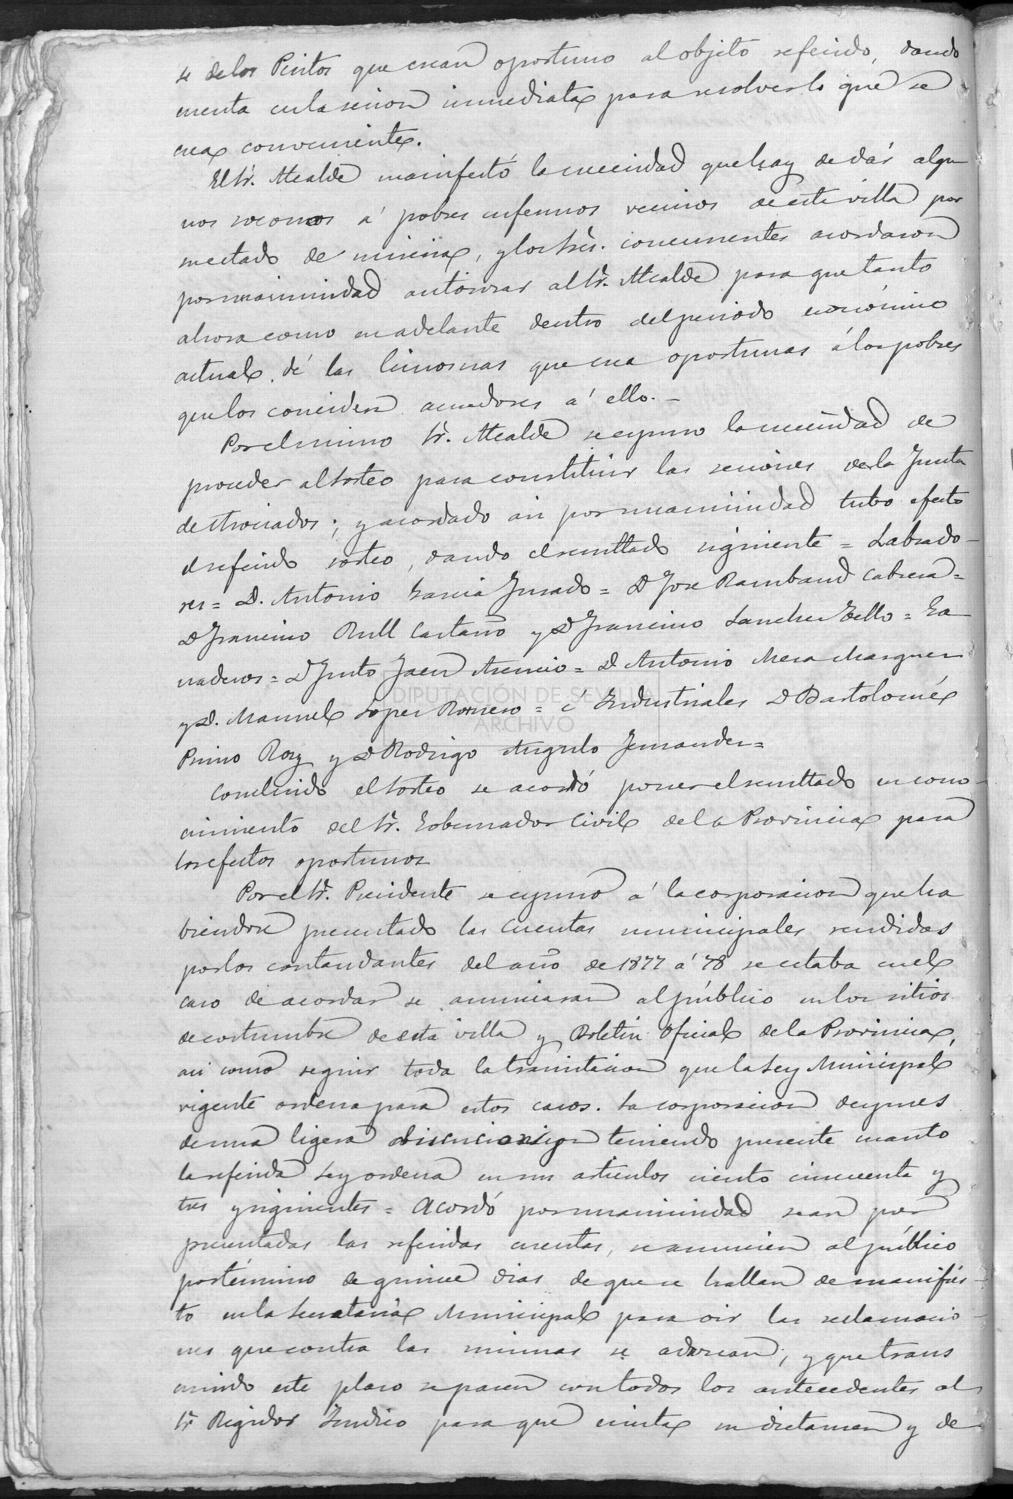 se de los Peritos que crean oportuno al objeto referido, dando
cuenta en la sesion inmediata para resolver lo que se
crea conveniente.
El Sr. Alcalde manifestó la necesidad que hay de dár algu
nos socorros á pobres enfermos vecinos de esta villa por
su estado de miseria, y los Srs. concurrentes acordaron
por unanimidad autorizar al Sr. Alcalde para que tanto
ahora como en adelante dentro del periodo económico
actual, dé las limosnas que crea oportunas á los pobres
que los considere acredores á ello.-
Por el mismo Sr. Alcalde se espuso la necesidad de
proceder al sorteo para constituir las sesiones de la Junta
de Asociados; y acordado asi por unanimidad tubo efecto
el referido sorteo, dando el resultado siguiente = Labrado-
res = D. Antonio Garcia Jurado = D Jose Rambaud Cabrera =
D Francisco Rull Castaño y D Francisco Sanchez Tello = Ga
naderos = D Justo Jaen Asencio = D Antonio Mesa Marquez
y D. Manuel Lopez Romero = é Industriales D Bartolomé
Primo Roz y D Rodrigo Angulo Fernandez =
DIPUTACIÓN DE SEVILLA
ARCHIVO
Concluido el sorteo se acordó poner el resultado en cono-
cimiento del Sr. Gobernador Civil de la Provincia para
los efectos oportunos
Por el Sr. Presidente se espuso á la corporacion que ha
biendose presentado las Cuentas municipales rendidas
por los cuentandantes del año de 1877 á 78 se estaba en el
caso de acordar se anunciaran al público en los sitios
de costumbre de esta villa y Boletin Oficial de la Provincia,
asi como seguir toda la tramitacion que la Ley Municipal
vigente ordena para estos casos. La corporacion despues
de una ligera discucion y teniendo presente cuanto
la referida Ley ordena en sus articulos ciento cincuenta y
tres y siguientes = Acordó por unanimidad sean por
presentadas las referidas cuentas, se anuncien al público
por término de quince dias de que se hallan de manifies-
to en la Secretaria Municipal para oir las reclamacio-
nes que contra las mismas se aduzcan; y que trans
currido este plazo se pasen con todos los antecedentes al
Sr Regidor Sindico para que emita su dictamen y de